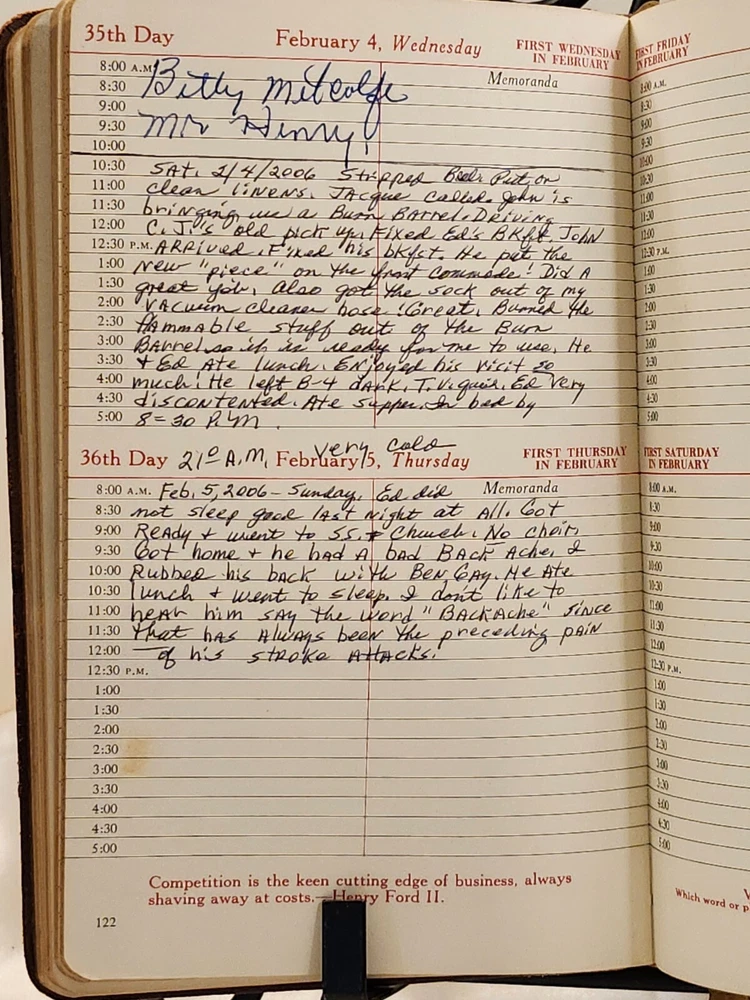 35th Day February 4, Wednesday FIRST WEDNESDAY IN FEBRUARY
8:00 A.M. Betty Metcalfe Memoranda
8:30
9:00
9:30 Mr Henry!
10:00
10:30 SAT. 2/4/2006 Stripped Beds. Put on
11:00 clean linens. JAcque called. John is
11:30 bringing me a Burn BArrel. Driving
12:00 C.J.'s old pick up. Fixed Ed's BKfst. JOhN
12:30 P.M. ARRived. Fixed his bkfst. He put the
1:00 New "piece" on the front commode! Did A
1:30 great job. Also got the sock out of my
2:00 VACuum cleaner hose! Great. Burned the
2:30 flAmmable stuff out of the Burn
3:00 BArrel so it is ready for me to use. He
3:30 + Ed Ate lunch. ENjoyed his visit so
4:00 much! He left B-4 dark. T.V. quit. Ed Very
4:30 discontented. Ate supper. In bed by
5:00 8=30 P.M.
36th Day 21° A.M. very cold February 5, Thursday FIRST THURSDAY IN FEBRUARY
8:00 A.M. Feb. 5, 2006 - Sunday. Ed did Memoranda
8:30 not sleep good last night at All. Got
9:00 Ready + went to S.S. + Church. No choir.
9:30 Got home + he had A bad BAck Ache. I
10:00 Rubbed his back with BeN GAy. He Ate
10:30 lunch + went to sleep. I don't like to
11:00 hear him say the word "BACkAche" since
11:30 that hAs Always been the preceding pAiN
12:00 of his stroke AttAcks.
12:30 P.M.
1:00
1:30
2:00
2:30
3:00
3:30
4:00
4:30
5:00
Competition is the keen cutting edge of business, always
shaving away at costs.—Henry Ford II.
122
FIRST FRIDAY
IN FEBRUARY
8:00 A.M.
8:30
9:00
9:30
10:00
10:30
11:00
11:30
12:00
12:30 P.M.
1:00
1:30
2:00
2:30
3:00
3:30
4:00
4:30
5:00
FIRST SATURDAY
IN FEBRUARY
8:00 A.M.
8:30
9:00
9:30
10:00
10:30
11:00
11:30
12:00
12:30 P.M.
1:00
1:30
2:00
2:30
3:00
3:30
4:00
4:30
5:00
Which word or p